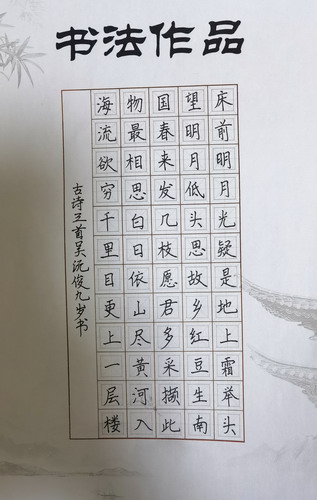 书法作品
床前明月光疑是地上霜举头
望明月低头思故乡红豆生南
国春来发几枝愿君多采撷此
物最相思白日依山尽黄河入
海流欲穷千里目更上一层楼
古诗三首吴沅俊九岁书